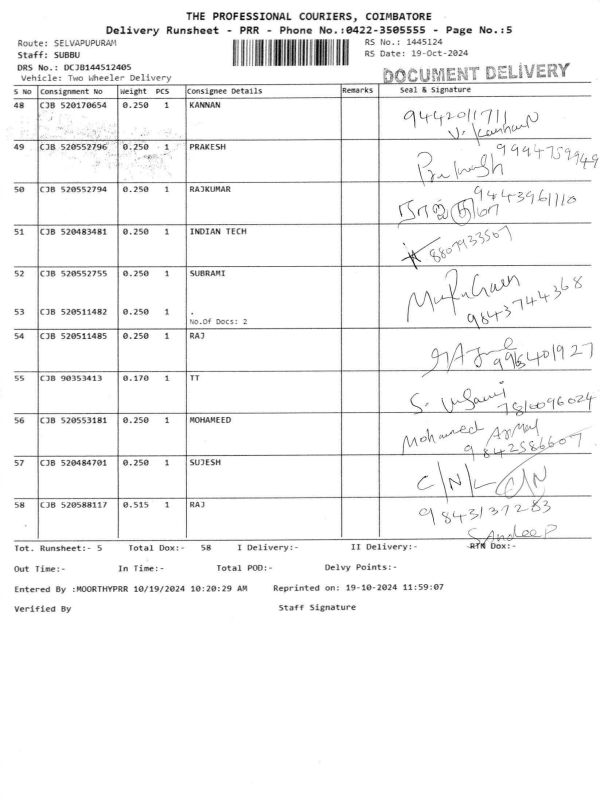 THE PROFESSIONAL COURIERS, COIMBATORE
Delivery Runsheet - PRR - Phone No.:0422-3505555 - Page No.:5
Route: SELVAPUPURAM
RS No.: 1445124
Staff: SUBBU
RS Date: 19-Oct-2024
DRS No.: DCJB144512405
DOCUMENT DELIVERY
Vehicle: Two Wheeler Delivery
S No Consignment No Weight PCS Consignee Details Remarks Seal & Signature
48 CJB 520170654 0.250 1 KANNAN 9442011711
V. Kannan
49 CJB 520552796 0.250 1 PRAKESH 9994759949
Prakash
50 CJB 520552794 0.250 1 RAJKUMAR 9443961110
51 CJB 520483481 0.250 1 INDIAN TECH 8807933567
52 CJB 520552755 0.250 1 SUBRAMI Murugan
53 CJB 520511482 0.250 1 . 9843744368
No.Of Docs: 2
54 CJB 520511485 0.250 1 RAJ
55 CJB 90353413 0.170 1 TT
7810096024
56 CJB 520553181 0.250 1 MOHAMEED Mohamed
9842586607
57 CJB 520484701 0.250 1 SUJESH C/N/L C/N
58 CJB 520588117 0.515 1 RAJ 9843137283
Sandeep
Tot. Runsheet:- 5 Total Dox:- 58 I Delivery:- II Delivery:- RTN Dox:-
Out Time:- In Time:- Total POD:- Delvy Points:-
Entered By :MOORTHYPRR 10/19/2024 10:20:29 AM Reprinted on: 19-10-2024 11:59:07
Verified By Staff Signature